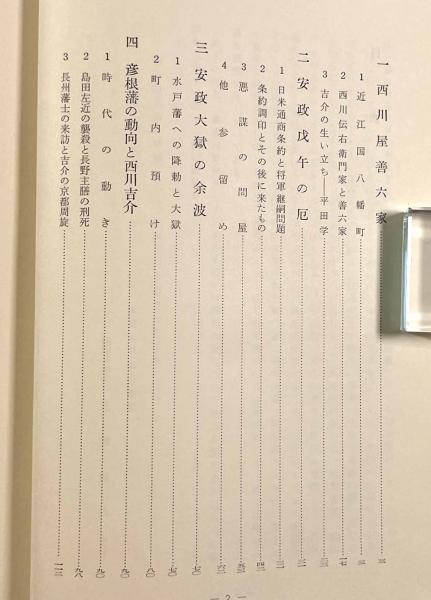 一 西川屋善六家
1 近江国八幡町
2 西川伝右衛門家と善六家
3 吉介の生い立ち――平田学
二 安政戊午の厄
1 日米通商条約と将軍継嗣問題
2 条約調印とその後に来たもの
3 悪謀の問屋
4 他参留め
三 安政大獄の余波
1 水戸藩への降勅と大獄
2 町内預け
四 彦根藩の動向と西川吉介
1 時代の動き 九〇
2 島田左近の襲殺と長野主膳の刑死 九八
3 長州藩士の来訪と吉介の京都周旋
— 2 —